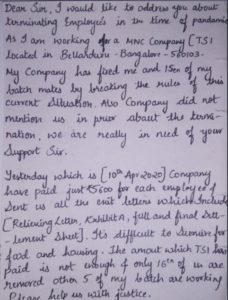 Dear Sir, I would like to address you about
terminating Employee's in the time of pandamic
As I am working for a MNC Company [TSI
located in Bellanduru - Bangalore - 560103.
My Company has fired me and 15 of my
batch mates by breaking the rules of this
current situation. Also Company did not
mention us in prior about the termi-
nation, we are really in need of your
Support Sir.
Yesterday which is [10th Apr 2020] Company
have paid just ₹5600 for each employee &
Sent us all the exit letters which Include
[Relieving Letter, Exhibit A, full and final Sett-
lement Sheet]. It's difficult to Survive for
food and housing. The amout which TSI has
paid is not enough & only 16 of us are
removed other 5 of my batch are working
Please help us with justice.